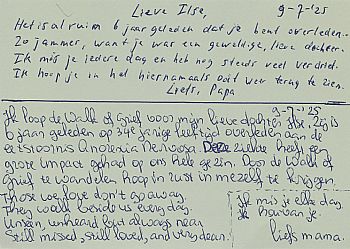 Lieve Ilse, 9-7-'25
Het is al ruim 6 jaar geleden dat je bent overleden.
Zo jammer, want je was een geweldige, lieve dochter.
Ik mis je iedere dag en heb nog steeds veel verdriet.
Ik hoop je in het hiernamaals ooit weer terug te zien.
Liefs, Papa
9-7-'25
Ik loop de Walk of Grief voor mijn lieve dochter Ilse. Zij is
6 jaar geleden op 34 jarige leeftijd overleden aan de
eetstoornis Anorexia Nervosa. Deze ziekte heeft een
grote impact gehad op ons hele gezin. Door de Walk of
Grief te wandelen hoop ik rust in mezelf te krijgen.
Those we love don't go away.
They walk beside us every day.
Unseen, unheard but always near,
still missed, still loved, and very dear.
Ik mis je elke dag.
Ik hou van je.
liefs mama.